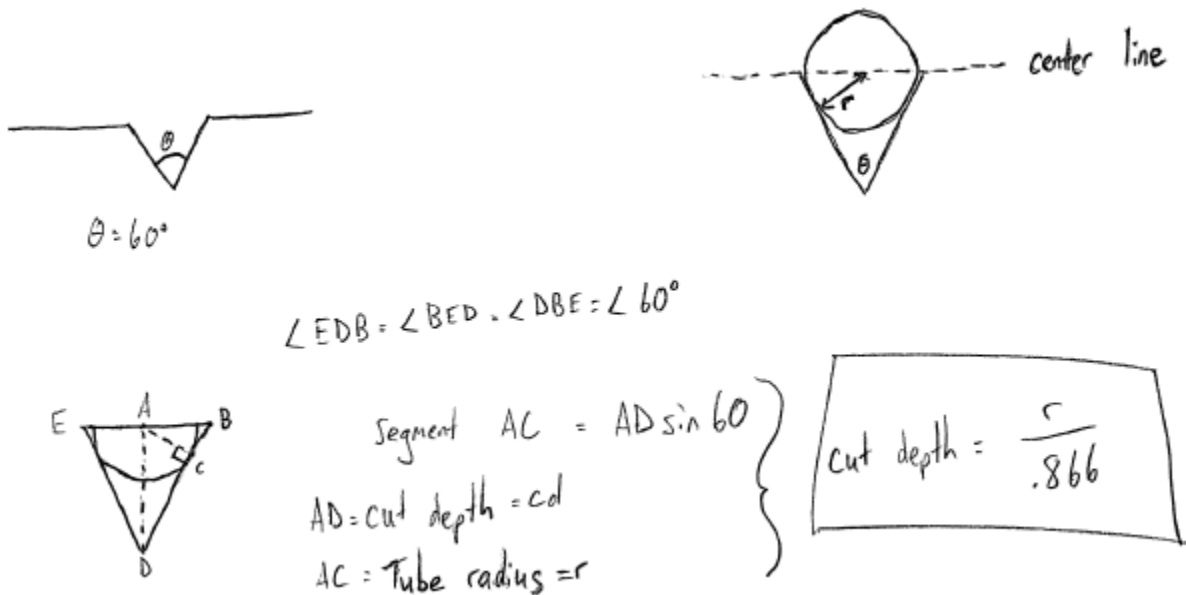 center line
r
θ
θ
θ = 60°
∠EDB = ∠BED = ∠DBE = ∠60°
E A B
C
D
Segment AC = AD sin 60
AD = cut depth = cd
AC = Tube radius = r
cut depth = r / .866